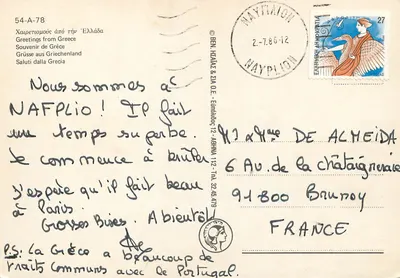 54-A-78
Χαιρετισμούς ἀπό τήν Ἑλλάδα
Greetings from Greece
Souvenir de Grèce
Grüsse aus Griechenland
Saluti dalla Grecia
ΝΑΥΠΛΙΟΝ
2-7.86-12
NAYPLION
27
Nous sommes à
NAFPLIO! Il fait
un temps superbe.
Je commence à brûler
J'espère qu'il fait beau
à Paris.
Grosses Bises. A bientôt
P.S: La Grèce a beaucoup de
traits communs avec le Portugal.
M & Mme DE ALMEIDA
6 Av. de la châtaigneraie
91800 Brunoy
FRANCE